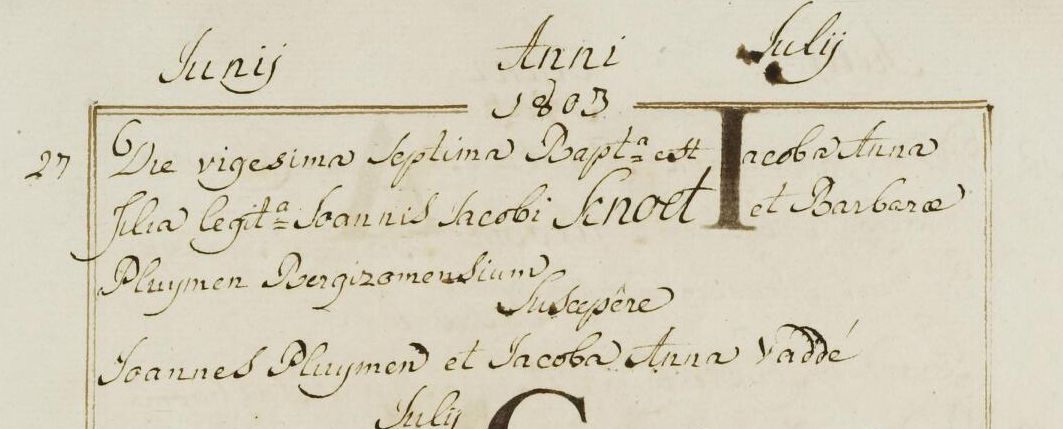 Junij Anni Julij
1803
27 Die vigesima septima Bapt:a est Iacoba Anna
filia legit:a Joannis Jacobi Knoet et Barbaræ
Pluymen Bergizomensium
Suscepêre
Joannes Pluymen et Jacoba Anna Vaddé
Julij